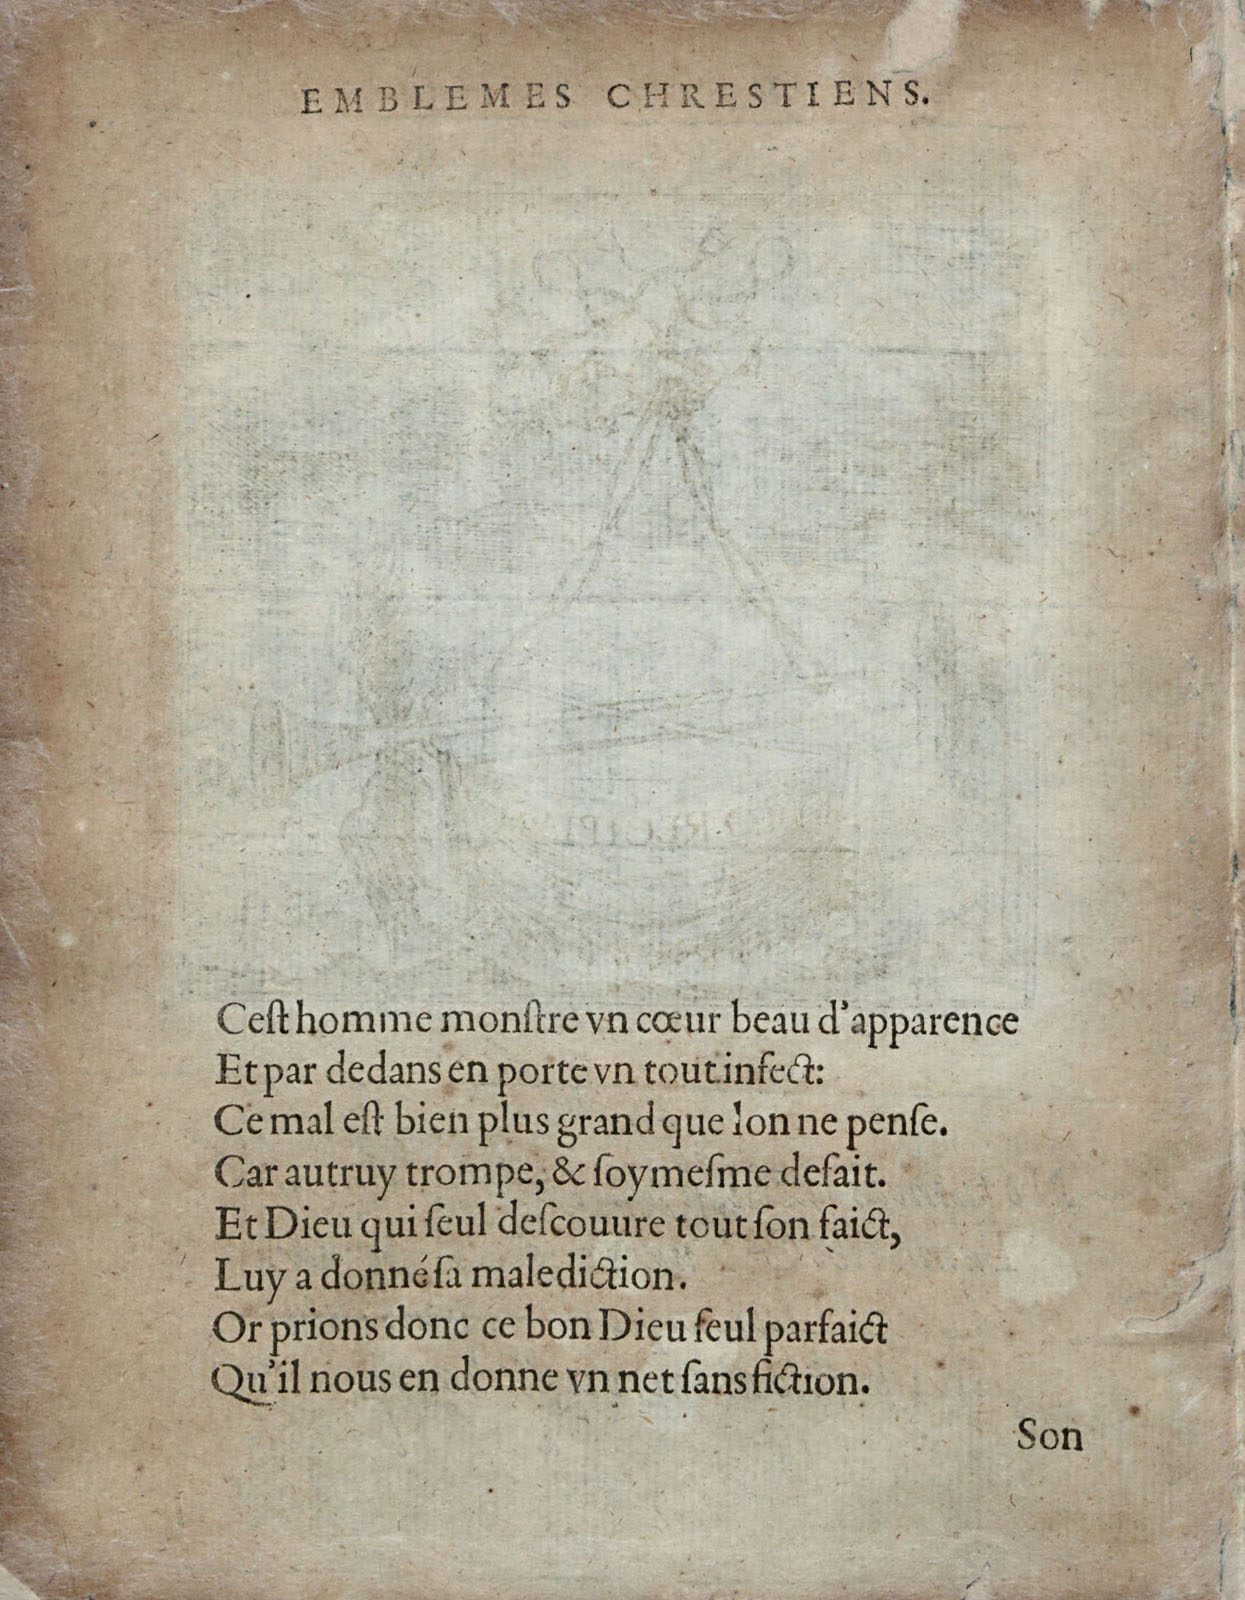 EMBLEMES CHRESTIENS.
Ceſt homme monſtre vn cœur beau d'apparence
Et par dedans en porte vn tout infect:
Ce mal eſt bien plus grand que lon ne penſe.
Car autruy trompe, & ſoymeſme defait.
Et Dieu qui ſeul deſcouure tout ſon faict,
Luy a donné ſa malediction.
Or prions donc ce bon Dieu ſeul parfaict
Qu'il nous en donne vn net ſans fiction.
Son